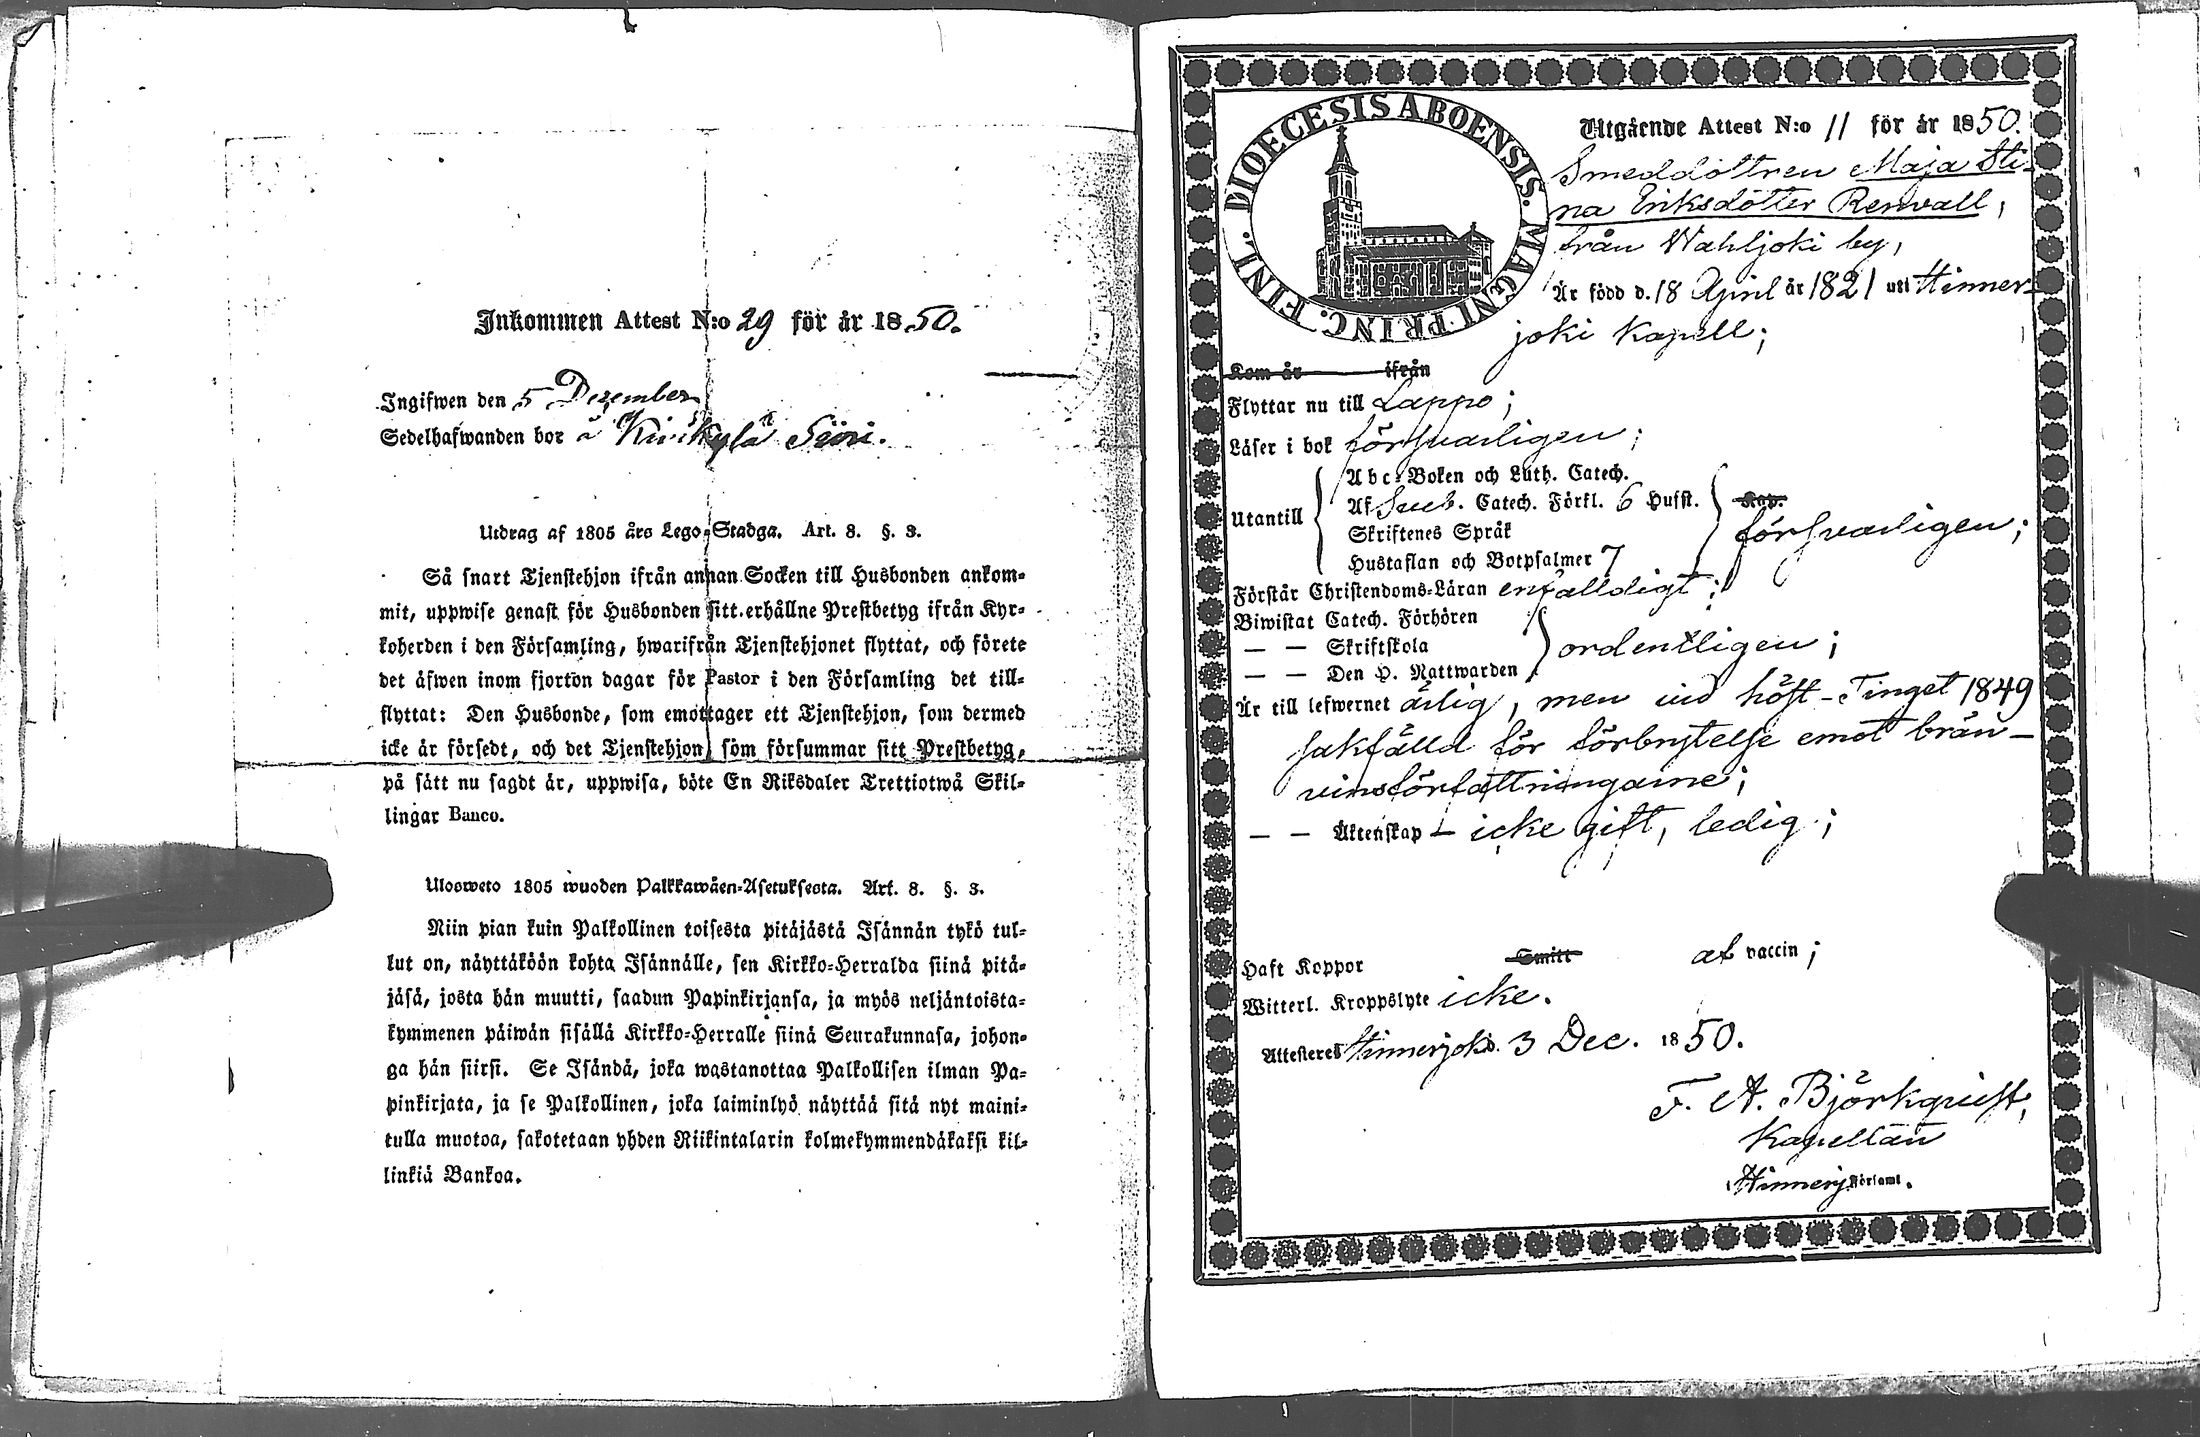 Inkommen Attest N:o 29 för år 1850.
Ingifwen den 5 December
Sedelhafwanden bor å Kivikylä Siivi.
Utdrag af 1805 års Lego-Stadga. Art. 8. §. 3.
Så snart Tjenstehjon ifrån annan Socken till Husbonden ankom-
mit, uppwise genast för Husbonden sitt erhållne Prestbetyg ifrån Kyr-
koherden i den Församling, hwarifrån Tjenstehjonet flyttat, och förete
det äfwen inom fjorton dagar för Pastor i den Församling det till-
flyttat: Den Husbonde, som emottager ett Tjenstehjon, som dermed
icke är försedt, och det Tjenstehjon, som försummar sitt Prestbetyg,
på sätt nu sagdt är, uppwisa, böte En Riksdaler Trettiotwå Skil-
lingar Banco.
Ulosweto 1805 wuoden Palkkawäen-Asetuksesta. Art. 8. §. 3.
Niin pian kuin Palkollinen toisesta pitäjästä Isännän tykö tul-
lut on, näyttäköön kohta Isännälle, sen Kirkko-Herralda siinä pitä-
jäsä, josta hän muutti, saadun Papinkirjansa, ja myös neljäntoista-
kymmenen päiwän sisällä Kirkko-Herralle siinä Seurakunnasa, johon-
ga hän siirsi. Se Isändä, joka wastanottaa Palkollisen ilman Pa-
pinkirjata, ja se Palkollinen, joka laiminlyö näyttää sitä nyt maini-
tulla muotoa, sakotetaan yhden Riikintalarin kolmekymmendäkaksi kil-
linkiä Bankoa.
DIOECESIS ABOENSIS. MAGNI PRINC. FINL.
Utgående Attest N:o 11 för år 1850.
Smeddottren Maja Sti-
na Eriksdotter Renvall,
från Wahljoki by,
Är född d. 18 April år 1821 uti Hinner-
joki Kapell;
Kom år ifrån
Flyttar nu till Lappo;
Läser i bok försvarligen;
Utantill
Abc-Boken och Luth. Catech.
Af Sveb. Catech. Förkl. 6 Hufst. Kap.
Skriftenes Språk
Hustaflan och Botpsalmer 7
försvarligen;
Förstår Christendoms-Läran enfalldigt;
Biwistat Catech. Förhören
— — Skriftskola
— — Den H. Nattwarden
ordentligen;
Är till lefwernet ärlig, men vid höst-Tinget 1849
sakfälld för förbrytelse emot brän-
vinsförfattningarne;
— — Äktenskap — icke gift, ledig;
Haft Koppor Smitt af vaccin;
Witterl. Kroppslyte icke.
Attesteres Hinnerjoki d. 3 Dec. 1850.
F. A. Björkqvist,
Kapellan
Hinnerj Församl.